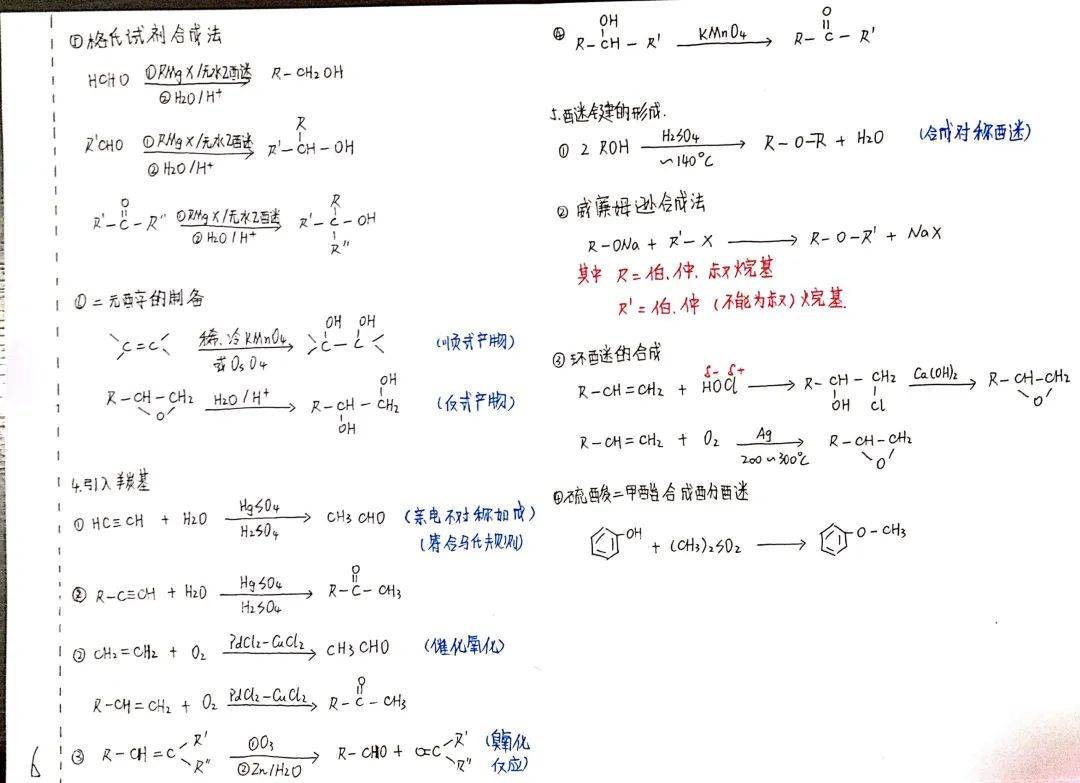 ⑦格氏试剂合成法
HCHO ①RMgX/无水乙醚 ②H2O/H+ → R-CH2OH
R'CHO ①RMgX/无水乙醚 ②H2O/H+ → R'-CH(R)-OH
R'-C(=O)-R'' ①RMgX/无水乙醚 ②H2O/H+ → R'-C(R)(R'')-OH
二元醇的制备
C=C 稀、冷KMnO4 或OsO4 → C(OH)-C(OH) (顺式产物)
R-CH-CH2 O H2O/H+ → R-CH(OH)-CH2(OH) (反式产物)
4.引入羰基
① HC≡CH + H2O HgSO4 H2SO4 → CH3CHO (亲电不对称加成)
(符合马氏规则)
② R-C≡CH + H2O HgSO4 H2SO4 → R-C(=O)-CH3
② CH2=CH2 + O2 PdCl2-CuCl2 → CH3CHO (催化氧化)
R-CH=CH2 + O2 PdCl2-CuCl2 → R-C(=O)-CH3
③ R-CH=C R' R'' ①O3 ②Zn/H2O → R-CHO + O=C R' R'' (臭氧化反应)
6
④ R-CH(OH)-R' KMnO4 → R-C(=O)-R'
5.醚键的形成.
① 2 ROH H2SO4 ~140℃ → R-O-R + H2O (合成对称醚)
② 威廉姆逊合成法
R-ONa + R'-X → R-O-R' + NaX
其中 R=伯、仲、叔烷基
R'=伯、仲(不能为叔)烷基.
③ 环醚的合成
R-CH=CH2 + δ- δ+ HOCl → R-CH(OH)-CH2(Cl) Ca(OH)2 → R-CH-CH2 O
R-CH=CH2 + O2 Ag 200~300℃ → R-CH-CH2 O
④硫酸二甲酯合成酚醚
OH + (CH3)2SO2 → O-CH3